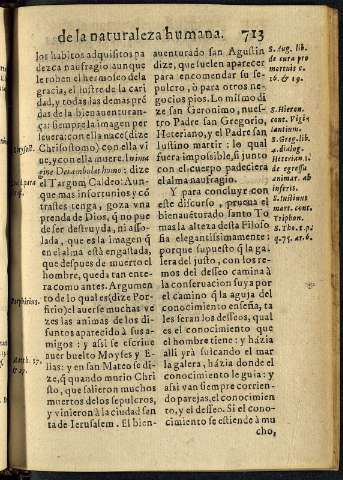 de la naturaleza humana. 713
los habitos adquisitos pa
dezca naufragio aunque
le roben el hermoseo dela
gracia, el lustre de la cari
dad, y todas las demas pré
das de la bienauenturan-
ça: siempre la imagen per
leuera: con ella nace (dize
Chrisostomo) con ella vi
ue, y con ella muere. In ima
gine Dei ambulat homo: dize
el Targum Caldeo. Aun-
que mas infortunios y cõ
trastes tenga, goza vna
prenda de Dios, q̃ no pue
de ser destruyda, ni asso-
lada, que es la imagen q̃
en el alma està engastada,
que despues de muerto el
hombre, queda tan ente-
ra como antes. Argumen
to de lo qual es (dize Por-
firio) el auerse muchas ve
zes las animas de los di-
funtos aparecido à sus a-
migos: y assi se escriue
auer buelto Moyses y E-
lias: y en san Mateo se di-
ze, q̃ quando murio Chri
sto, que salieron muchos
muertos de los sepulcros,
y vinieron à la ciudad san
ta de Ierusalem. El bien-
auenturado san Agustin
dize, que suelen aparecer
para encomendar su se-
pulcro, ò para otros ne-
gocios pios. Lo mismo di
ze san Geronimo, nuest-
tro Padre san Gregorio,
Heteriano, y el Padre san
Iustino martir: lo qual
fuera impossible, si junto
con el cuerpo padeciera
el alma naufragio.
Y para concluyr con
este discurso, prueua el
bienauéturado santo To
mas la alteza desta Filoso
fia elegantissimamente:
porque supuesto q̃ la ga-
lera del justo, con los re-
mos del desseo camina à
la conseruacion suya por
el camino q̃ la aguja del
conocimiento enseña, ta
les seran los desseos, qual
es el conocimiento que
el hombre tiene: y házia
alli yrà sulcando el mar
la galera, házia donde el
conocimiento le guia: y
assi van siempre corrien-
do parejas, el conocimien
to, y el desseo. Si el cono-
cimiento se estiende à mu
cho,
S. Aug. lib.
de cura pro
mortuis c.
16. & 19.
S. Hieron.
cont. Vigi
lantium.
S. Greg. lib.
4. dialog.
Heterian. l.
de egressu
animar. ab
inferis.
S. Iustinus
mart. cont.
Triphon.
S. Tho. 1. p.
q. 75. ar. 6.
Porphirius.
27.